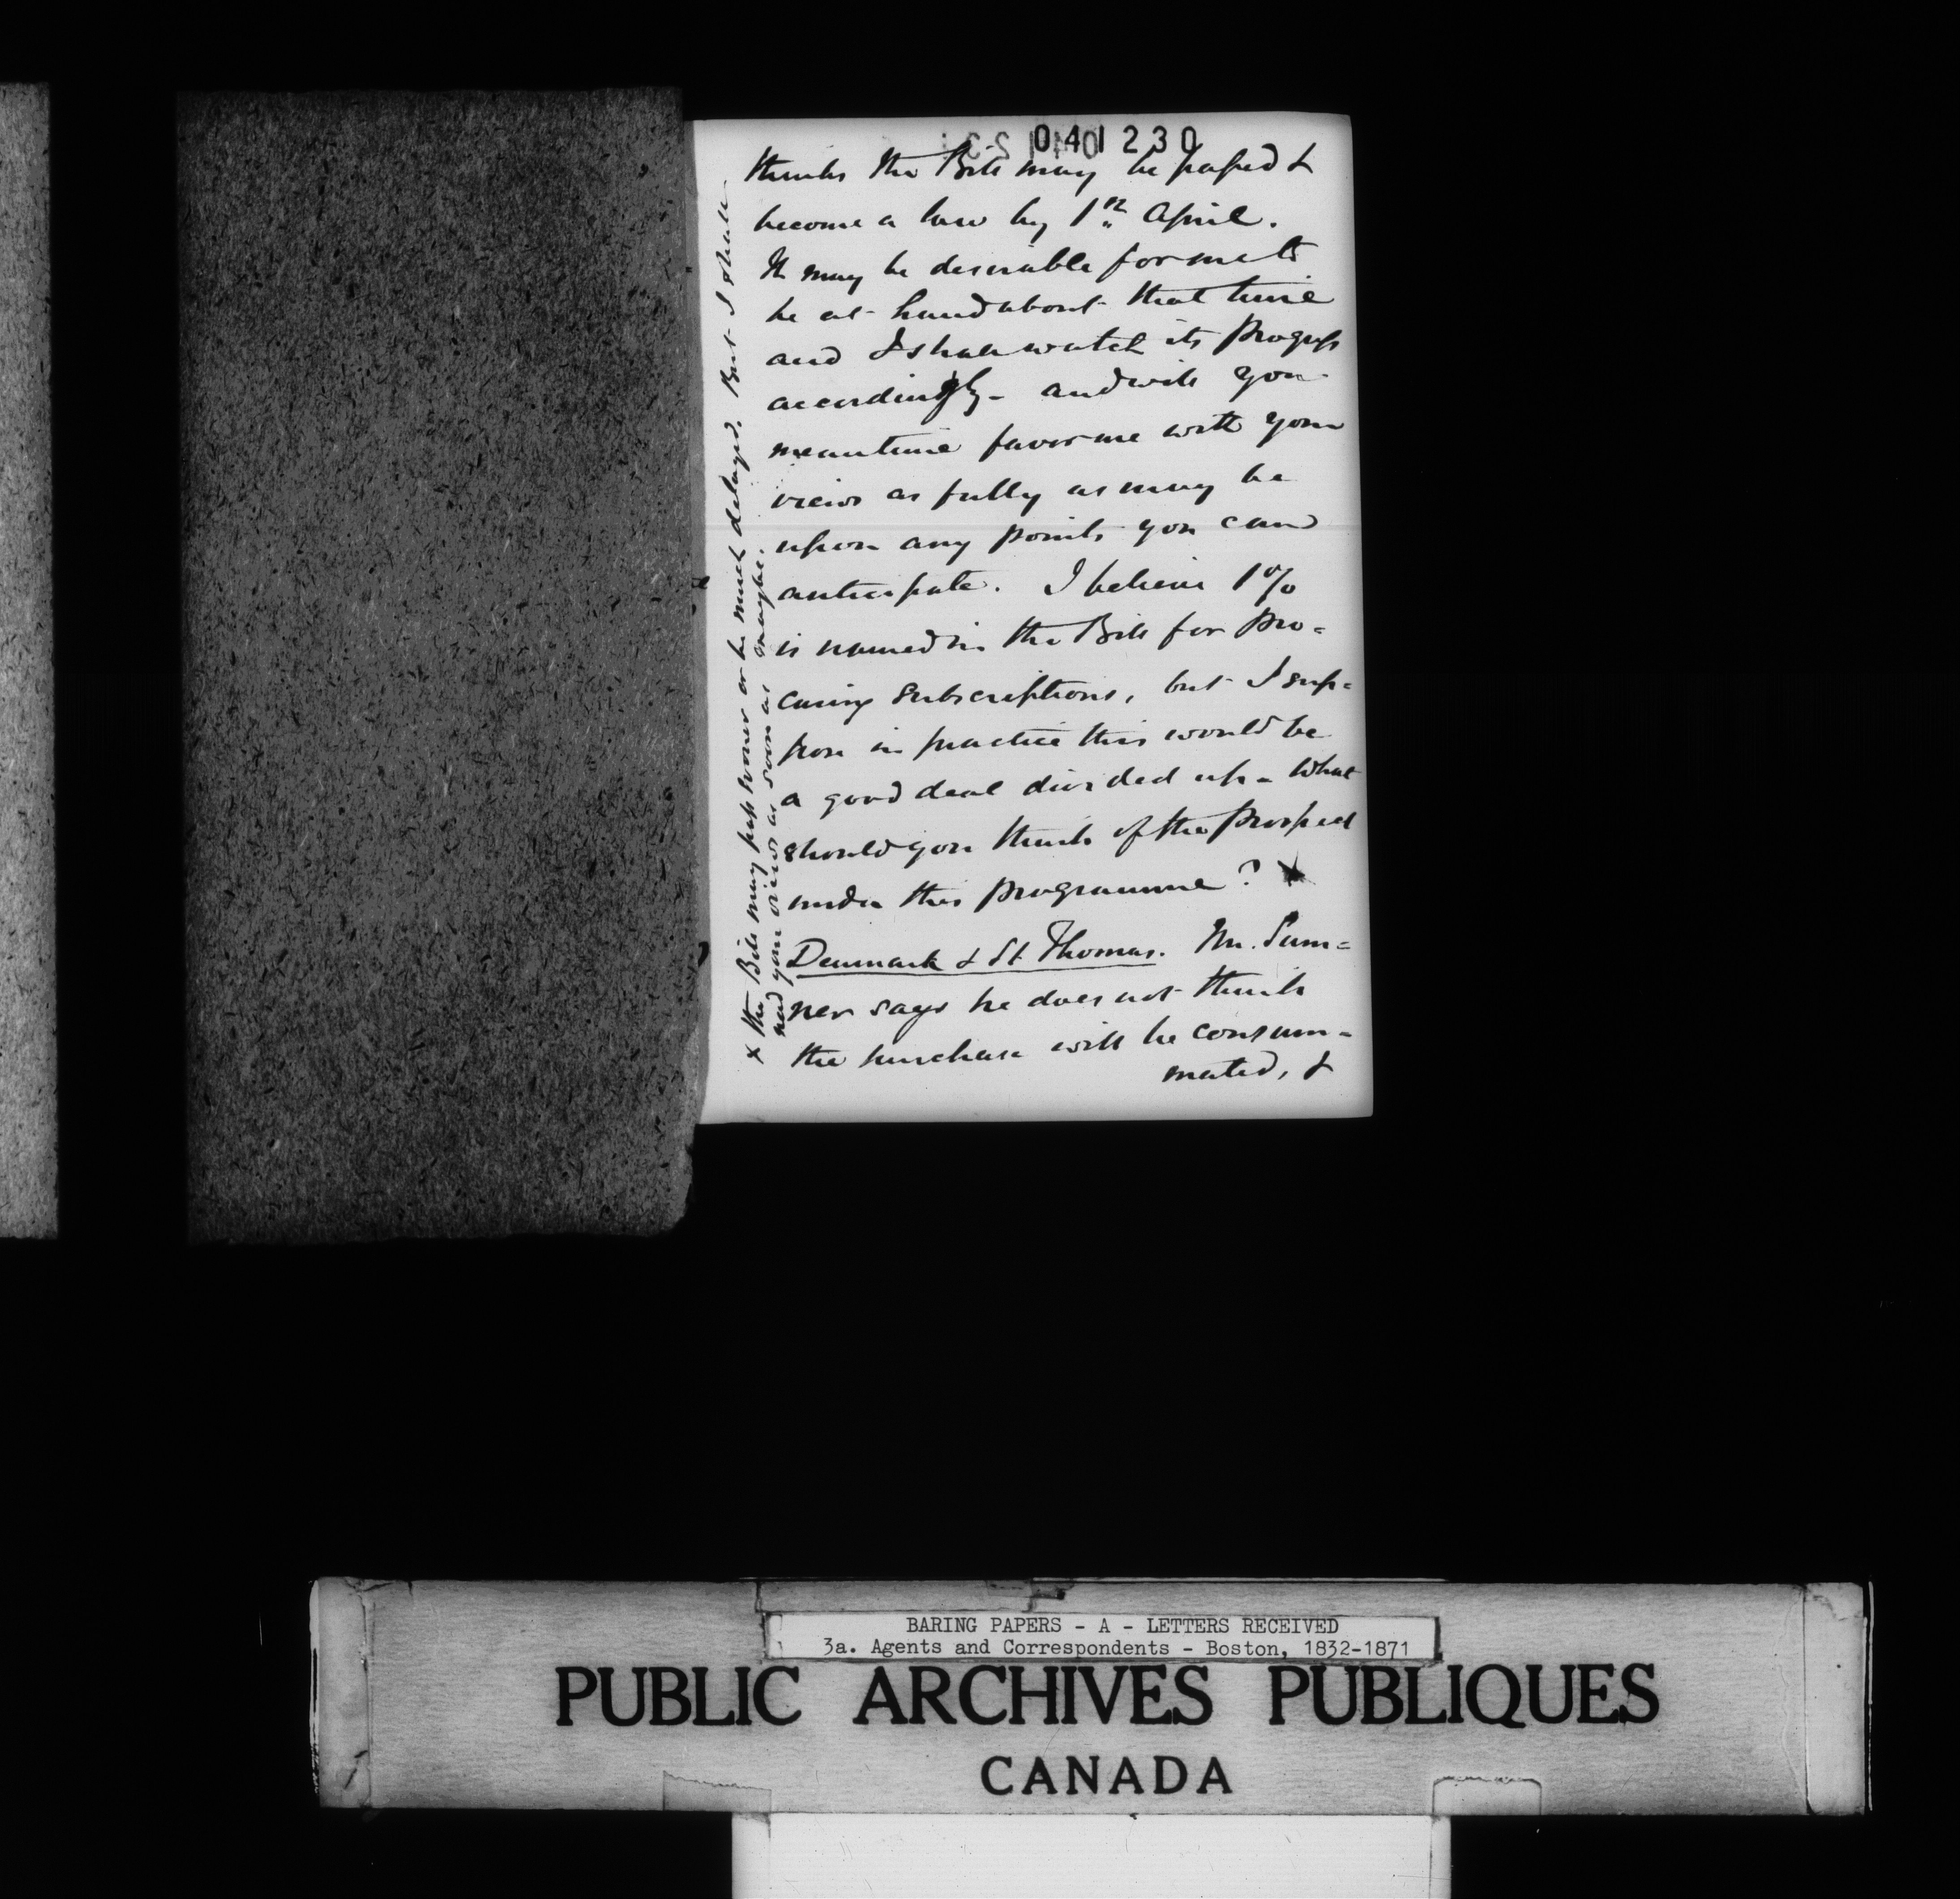 041230
thinks the Bill may be passed &
become a law by 1st April.
It may be desirable for me to
be at hand about that time
and I shall watch its progress
accordingly - and will you
meantime favor me with your
views as fully as may be
upon any points you can
anticipate. I believe 1%
is named in the Bill for pro=
curing subscriptions, but I sup=
pose in practice this would be
a good deal divided up - What
should you think of the prospect
under this programme? x
Denmark & St Thomas. Mr. Sum=
ner says he does not think
the purchase will be consum=
mated, &
x the Bill may pass sooner or be much delayed. But I shall
need your views as soon as maybe.
BARING PAPERS - A - LETTERS RECEIVED
3a. Agents and Correspondents - Boston, 1832-1871
PUBLIC ARCHIVES PUBLIQUES
CANADA